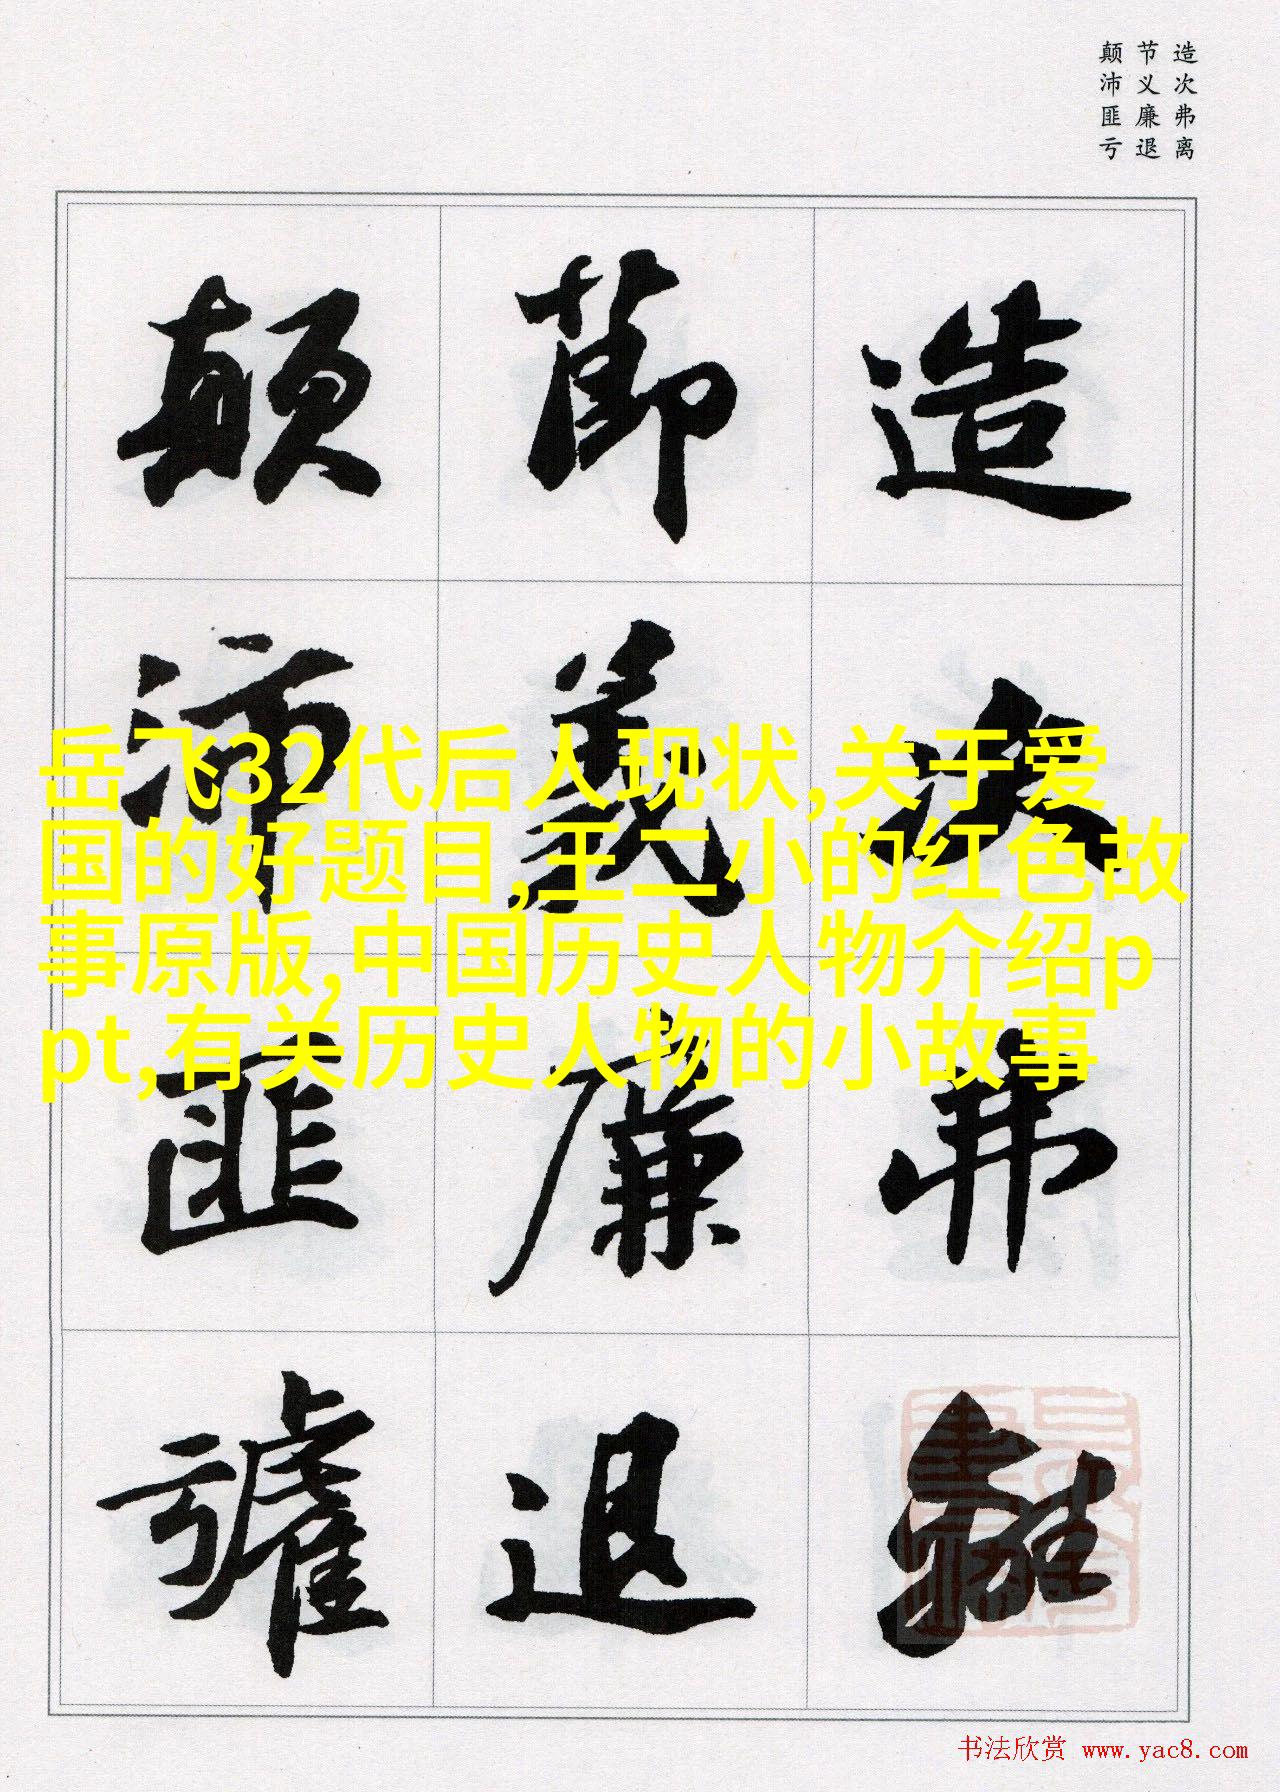 造次弗离
节义廉退
颠沛匪亏
造次弗離
節義廉退
顛沛匪虧
岳飞32代后人现状,关于爱
国的好题目,王二小的红色故
事原版,中国历史人物介绍p
pt,有关历史人物的小故事
书法欣赏 www.yac8.com